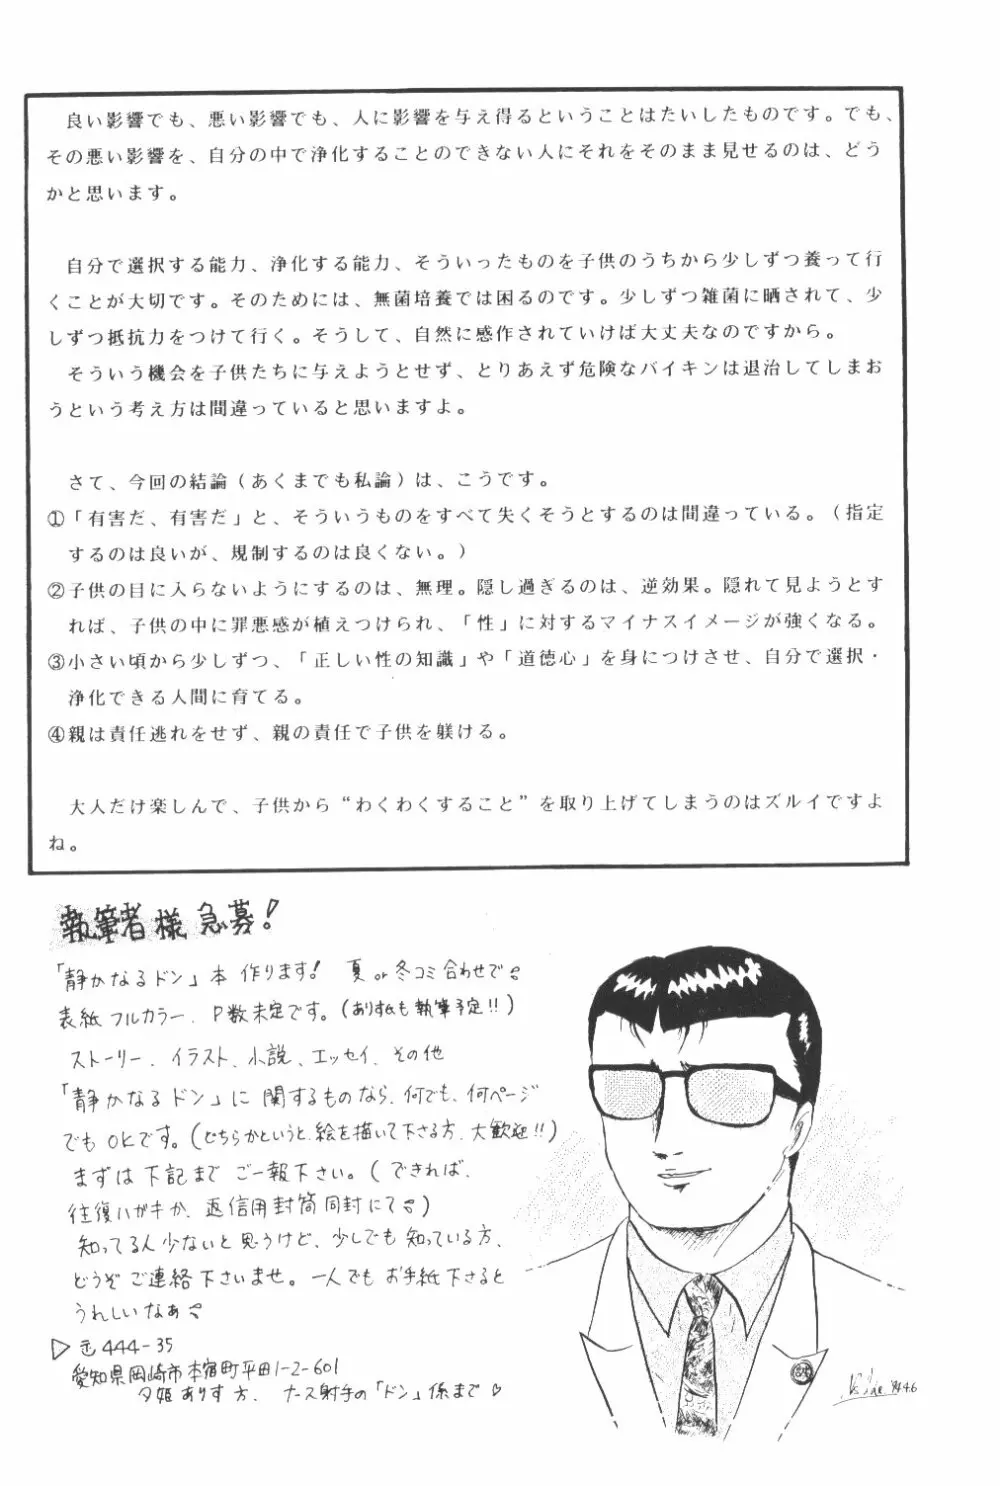 良い影響でも、悪い影響でも、人に影響を与え得るということはたいしたものです。でも、
その悪い影響を、自分の中で浄化することのできない人にそれをそのまま見せるのは、どう
かと思います。
自分で選択する能力、浄化する能力、そういったものを子供のうちから少しずつ養って行
くことが大切です。そのためには、無菌培養では困るのです。少しずつ雑菌に晒されて、少
しずつ抵抗力をつけて行く。そうして、自然に感作されていけば大丈夫なのですから。
そういう機会を子供たちに与えようとせず、とりあえず危険なバイキンは退治してしまお
うという考え方は間違っていると思いますよ。
さて、今回の結論（あくまでも私論）は、こうです。
①「有害だ、有害だ」と、そういうものをすべて失くそうとするのは間違っている。（指定
するのは良いが、規制するのは良くない。）
②子供の目に入らないようにするのは、無理。隠し過ぎるのは、逆効果。隠れて見ようとす
れば、子供の中に罪悪感が植えつけられ、「性」に対するマイナスイメージが強くなる。
③小さい頃から少しずつ、「正しい性の知識」や「道徳心」を身につけさせ、自分で選択・
浄化できる人間に育てる。
④親は責任逃れをせず、親の責任で子供を躾ける。
大人だけ楽しんで、子供から“わくわくすること”を取り上げてしまうのはズルイですよ
ね。
執筆者様急募！
「静かなるドン」本作ります！ 夏or冬コミ合わせで。
表紙フルカラー、P数未定です。（ありす姫も執筆予定!!）
ストーリー、イラスト、小説、エッセイ、その他
「静かなるドン」に関するものなら、何でも、何ページ
でもOKです。（どちらかというと、絵を描いて下さる方、大歓迎!!）
まずは下記までご一報下さい。（できれば、
往復ハガキか、返信用封筒同封にて）
知ってる人少ないと思うけど、少しでも知っている方、
どうぞご連絡下さいませ。一人でもお手紙下さると
うれしいなぁ
▷〒444-35
愛知県岡崎市本宿町平田1-2-601
夕姫ありす方、ナース射手の「ドン」係まで♡
'94.4.6